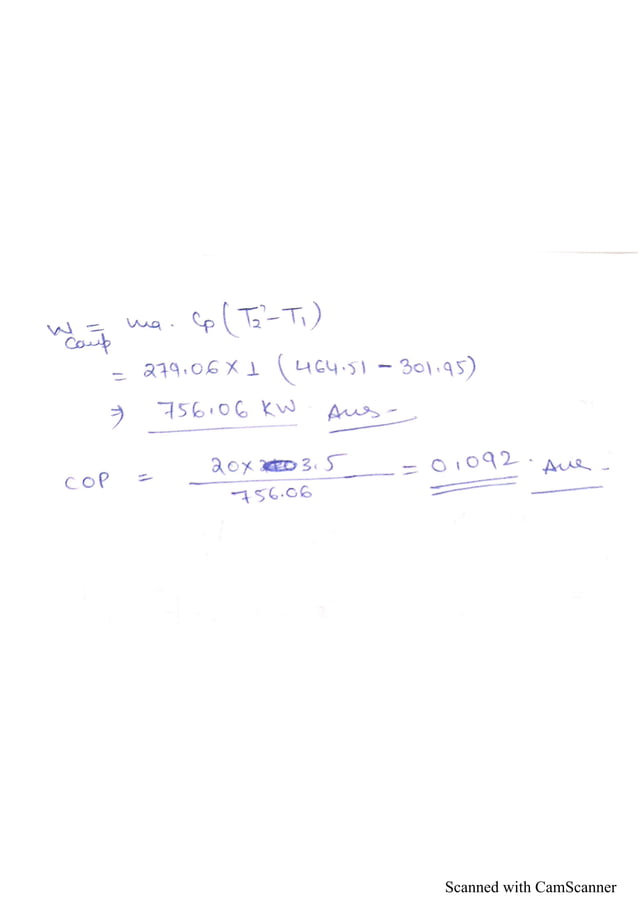 W Comp = ma. Cp (T2' - T1)
= 279.06 × 1 (464.51 - 301.95)
⇒ 756.06 KW Ans -
COP = 20 × 3.5 / 756.06 = 0.092. Ans -
Scanned with CamScanner